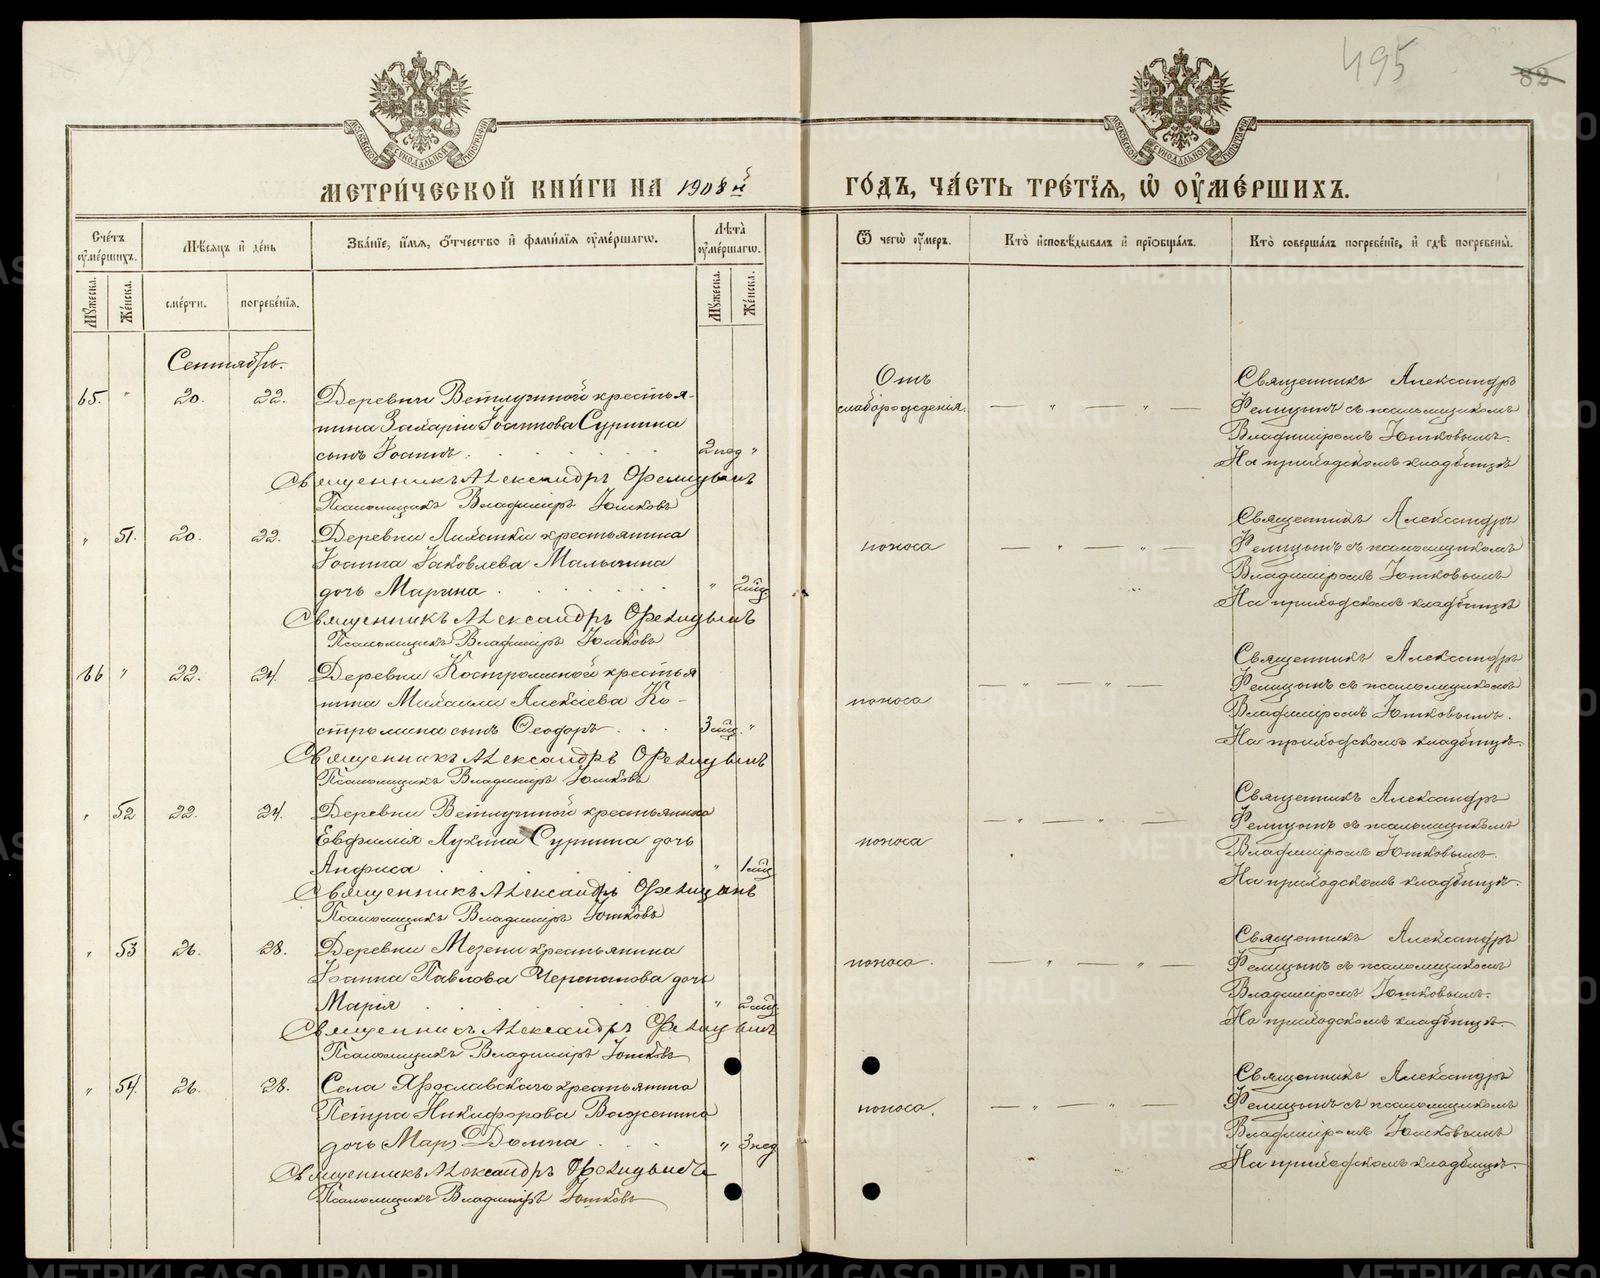 495
82
МОСКОВСКОЙ СѴНОДАЛЬНОЙ ТИПОГРАФІИ
МОСКОВСКОЙ СѴНОДАЛЬНОЙ ТИПОГРАФІИ
МЕТРИ́ЧЕСКОЙ КНИ́ГИ НА 1908й
ГО́ДЪ, ЧА́СТЬ ТРЕ́ТІѦ, Ѡ҆ ОУ҆МЕ́РШИХЪ.
Сче́тъ оу҆ме́ршихъ.
Мѣ́сѧцъ и҆ де́нь
Зва́нїе, и҆́мѧ, ѻ҆́тчество и҆ фами́лїѧ оу҆ме́ршагѡ.
Лѣ́та оу҆ме́ршагѡ.
Ѿ чегѡ̀ оу҆́меръ.
Кто̀ и҆сповѣ́дывалъ и҆ прїобща́лъ.
Кто̀ соверша́лъ погребе́нїе, и҆ гдѣ̀ погребены̀.
Мꙋ́жеска.
Же́нска.
сме́рти.
погребе́нїѧ.
Мꙋ́жеска.
Же́нска.
Сентябрь.
65. " 20. 22. Деревни Ветлугиной крестья-
нина Захаріи Іоаннова Сурнина
сынъ Іоаннъ. 2 нед "
Священникъ Александръ Фелицынъ
Псаломщикъ Владиміръ Юшковъ
Отъ
слаборожденія.
Священникъ Александръ
Фелицынъ съ псаломщикомъ
Владиміромъ Юшковымъ.
На приходскомъ кладбищѣ
" 51. 20. 22. Деревни крестьянина
Іоанна Іаковлева Мальгина
дочь Марина " 2 мѣс
Священникъ Александръ Фелицынъ
Псаломщикъ Владиміръ Юшковъ
поноса
Священникъ Александръ
Фелицынъ съ псаломщикомъ
Владиміромъ Юшковымъ
На приходскомъ кладбищѣ
66 " 22. 24. Деревни Костроминой крестья
нина Михаила Алексіева Ко-
стромина сынъ Ѳеодоръ 3 мѣс. "
Священникъ Александръ Фелицынъ
Псаломщикъ Владиміръ Юшковъ
поноса
Священникъ Александръ
Фелицынъ съ псаломщикомъ
Владиміромъ Юшковымъ.
На приходскомъ кладбищѣ.
" 52 22. 24. Деревни Ветлугиной крестьянина
Евфимія Лукина Сурнина дочь
Анфиса " 1 мѣс
Священникъ Александръ Фелицынъ
Псаломщикъ Владиміръ Юшковъ
поноса
Священникъ Александръ
Фелицынъ съ псаломщикомъ
Владиміромъ Юшковымъ.
На приходскомъ кладбищѣ.
" 53 26. 28. Деревни Мезени крестьянина
Іоанна Павлова Черепанова дочь
Марія " 2 мѣс
Священникъ Александръ Фелицынъ
Псаломщикъ Владиміръ Юшковъ
поноса.
Священникъ Александръ
Фелицынъ съ псаломщикомъ
Владиміромъ Юшковымъ.
На приходскомъ кладбищѣ.
" 54. 26. 28. Села Ярославскаго крестьянина
Петра Никифорова Важенина
дочь Домна " 3 нед
Священникъ Александръ Фелицынъ
Псаломщикъ Владиміръ Юшковъ
поноса.
Священникъ Александръ
Фелицынъ съ псаломщикомъ
Владиміромъ Юшковымъ
На приходскомъ кладбищѣ.
METRIKI.GASO-URAL.RU